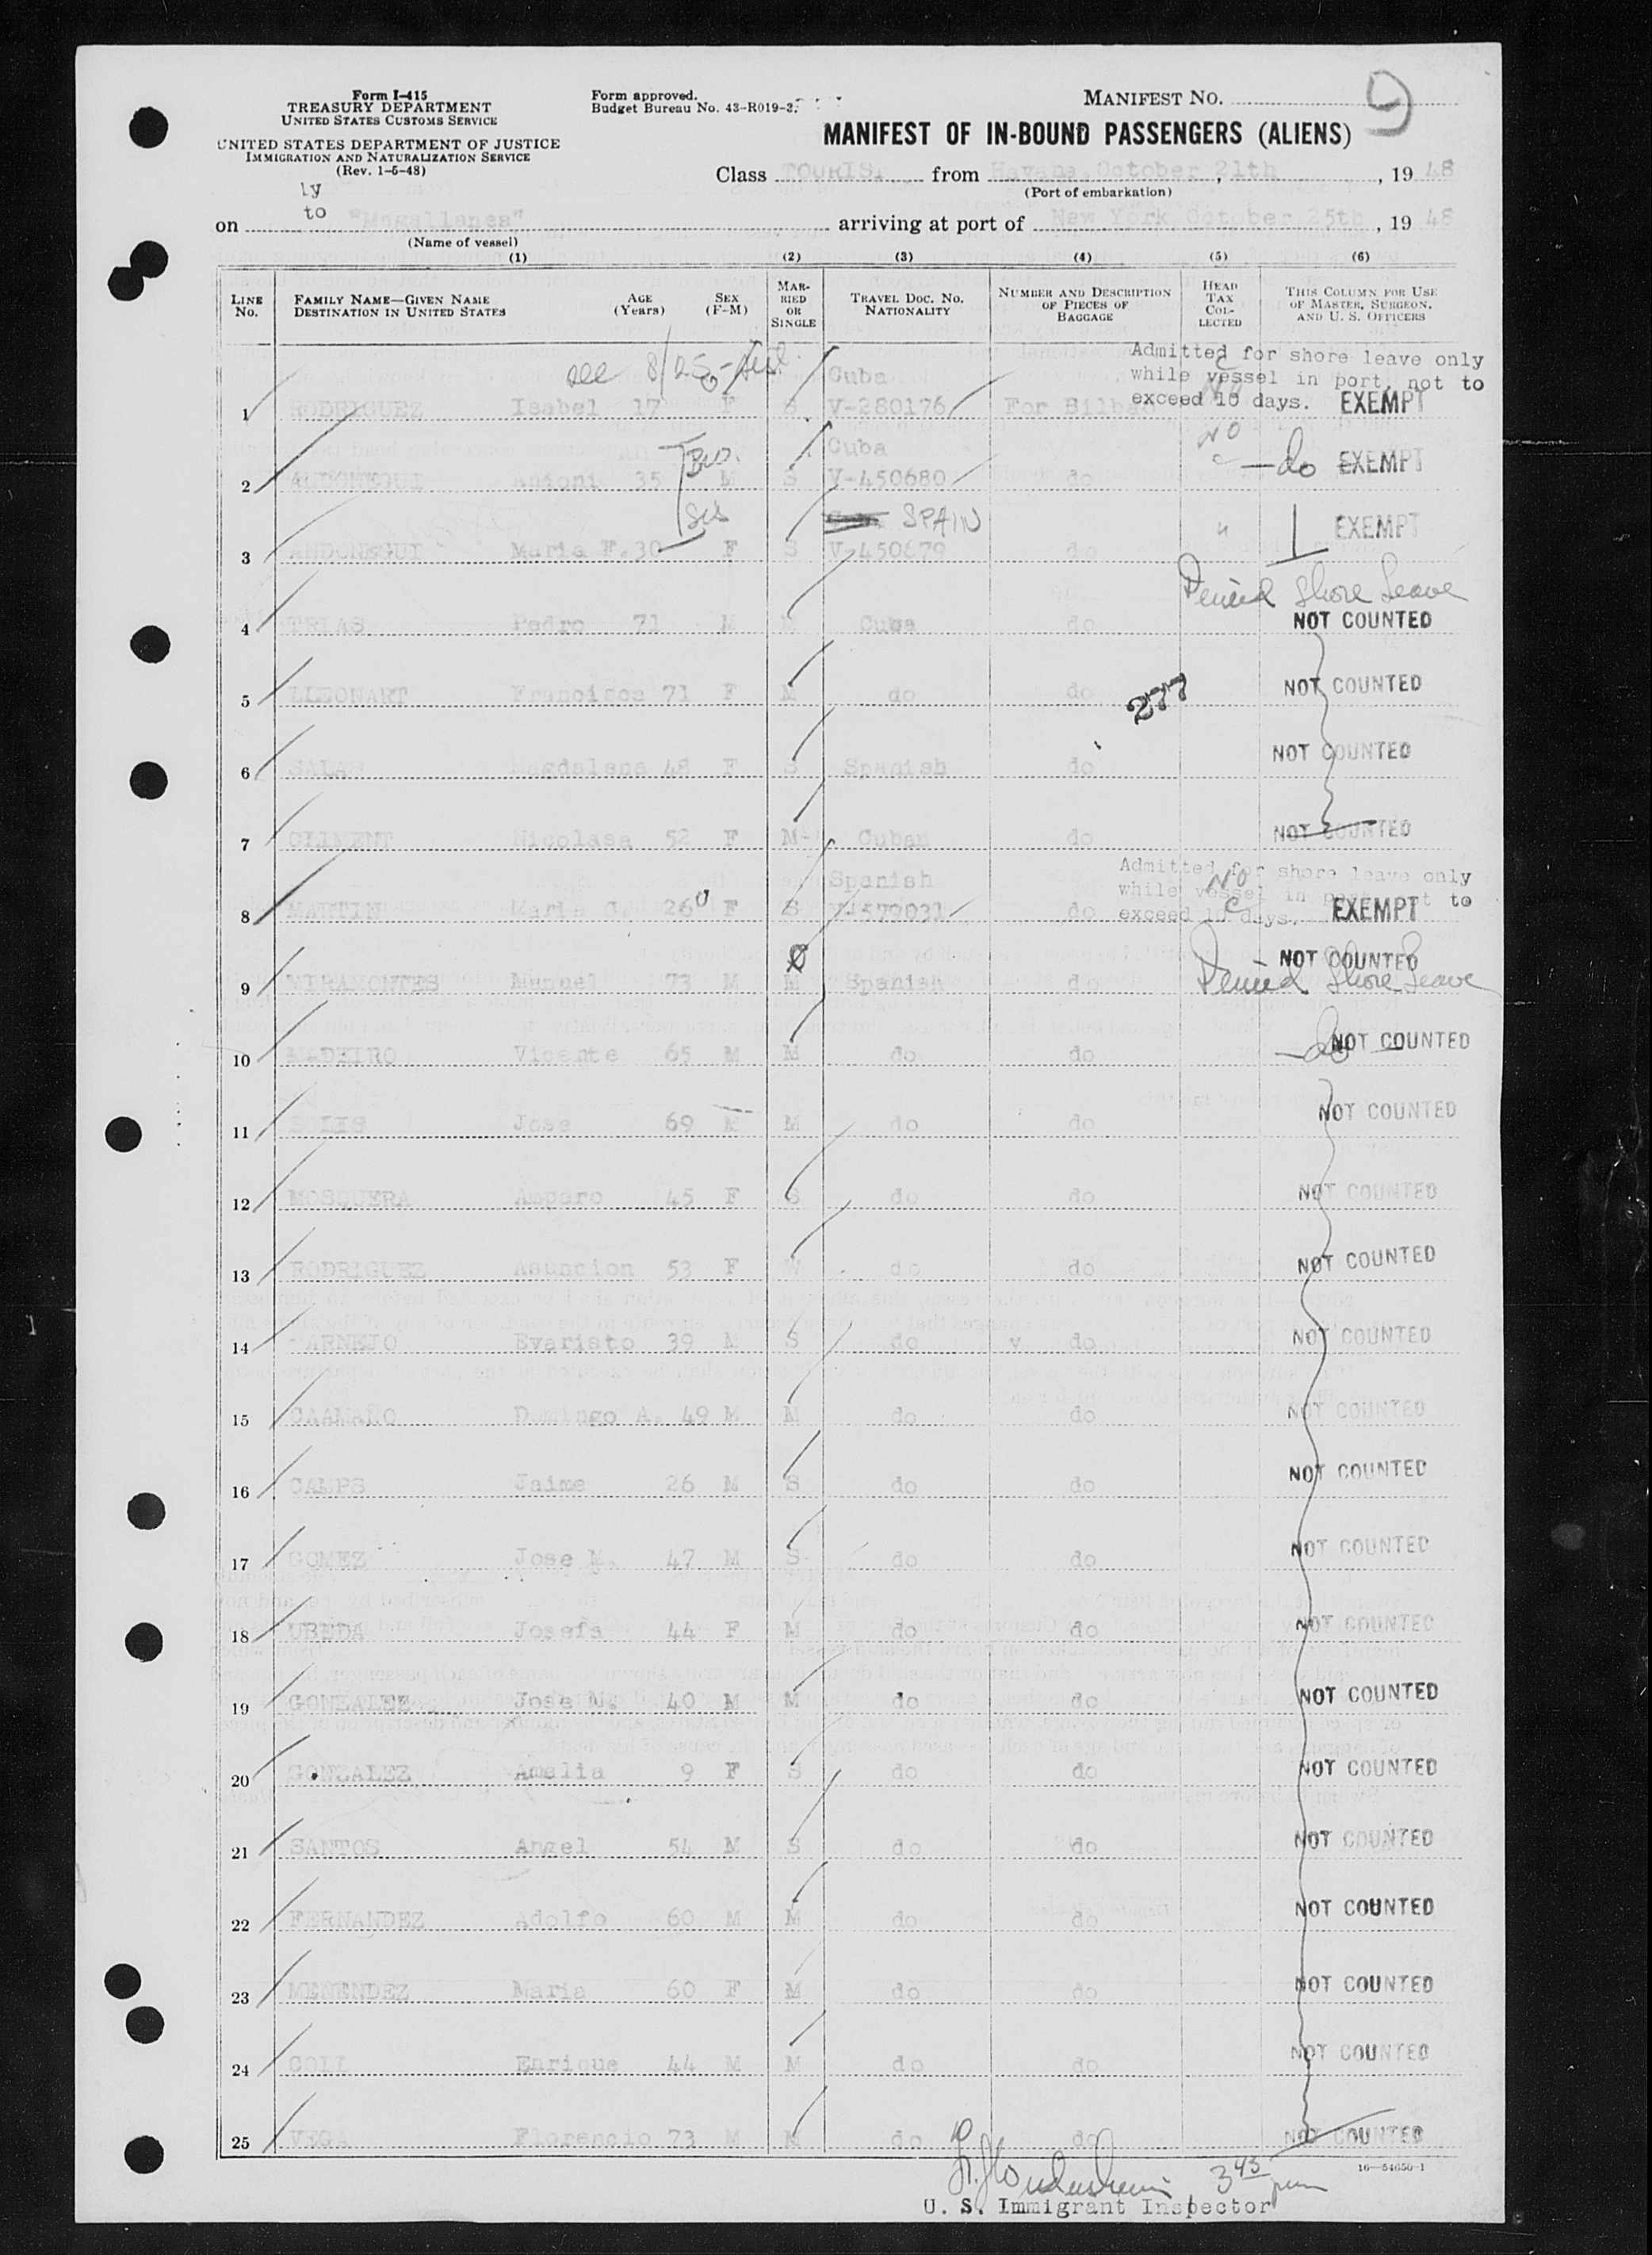 Form I-415
TREASURY DEPARTMENT
UNITED STATES CUSTOMS SERVICE
UNITED STATES DEPARTMENT OF JUSTICE
IMMIGRATION AND NATURALIZATION SERVICE
(Rev. 1-5-48)
Form approved.
Budget Bureau No. 43-R019-2.
MANIFEST No. 9
MANIFEST OF IN-BOUND PASSENGERS (ALIENS)
Class TOURIST from Havana, October 21th, 1948
(Port of embarkation)
ly
to
on "Magallanes" arriving at port of New York October 25th, 1948
(Name of vessel)
(1) (2) (3) (4) (5) (6)
LINE No. FAMILY NAME—GIVEN NAME DESTINATION IN UNITED STATES AGE (Years) SEX (F-M) MARRIED OR SINGLE TRAVEL DOC. NO. NATIONALITY NUMBER AND DESCRIPTION OF PIECES OF BAGGAGE HEAD TAX COLLECTED THIS COLUMN FOR USE OF MASTER, SURGEON, AND U. S. OFFICERS
see 8/25 Cuba Admitted for shore leave only
while vessel in port, not to
1 RODRIGUEZ Isabel 17 F S V-280176 For Bilbao exceed 10 days. EXEMPT
Bro. Cuba NO
2 Antoni 35 M S V-450680 do c —do EXEMPT
Sis SPAIN
3 ANDONEGUI Maria F. 30 F S V-450679 do " EXEMPT
Denied Shore Leave
4 TRIAS Pedro 71 M M Cuba do NOT COUNTED
5 LLEONART Francisca 71 F M do do 277 NOT COUNTED
6 SALAS Magdalena 48 F S Spanish do NOT COUNTED
7 CLIMENT Nicolasa 52 F M Cuban do NOT COUNTED
Spanish Admitted for shore leave only
while vessel in port not to
NO
8 MARTIN Maria C. 26 F S V-579031 do exceed 10 days. c EXEMPT
NOT COUNTED
9 MIRAMONTES Manuel 73 M M Spanish do Denied Shore Leave
10 MADEIRO Vicente 65 M M do do —do— NOT COUNTED
11 SOLIS Jose 69 M M do do NOT COUNTED
12 MOSQUERA Amparo 45 F S do do NOT COUNTED
13 RODRIGUEZ Asuncion 53 F W do do NOT COUNTED
14 Evaristo 39 M S do v do NOT COUNTED
15 CAAMAÑO Domingo A. 49 M M do do NOT COUNTED
16 CAMPS Jaime 26 M S do do NOT COUNTED
17 GOMEZ Jose M. 47 M S do do NOT COUNTED
18 UBEDA Josefa 44 F M do do NOT COUNTED
19 GONZALEZ Jose M. 40 M M do do NOT COUNTED
20 GONZALEZ Amelia 9 F S do do NOT COUNTED
21 SANTOS Angel 54 M S do do NOT COUNTED
22 FERNANDEZ Adolfo 60 M M do do NOT COUNTED
23 MENENDEZ Maria 60 F M do do NOT COUNTED
24 COLL Enrique 44 M M do do NOT COUNTED
25 VEGA Florencio 73 M M do do NOT COUNTED
16—54650-1
3 45 pm
U. S. Immigrant Inspector